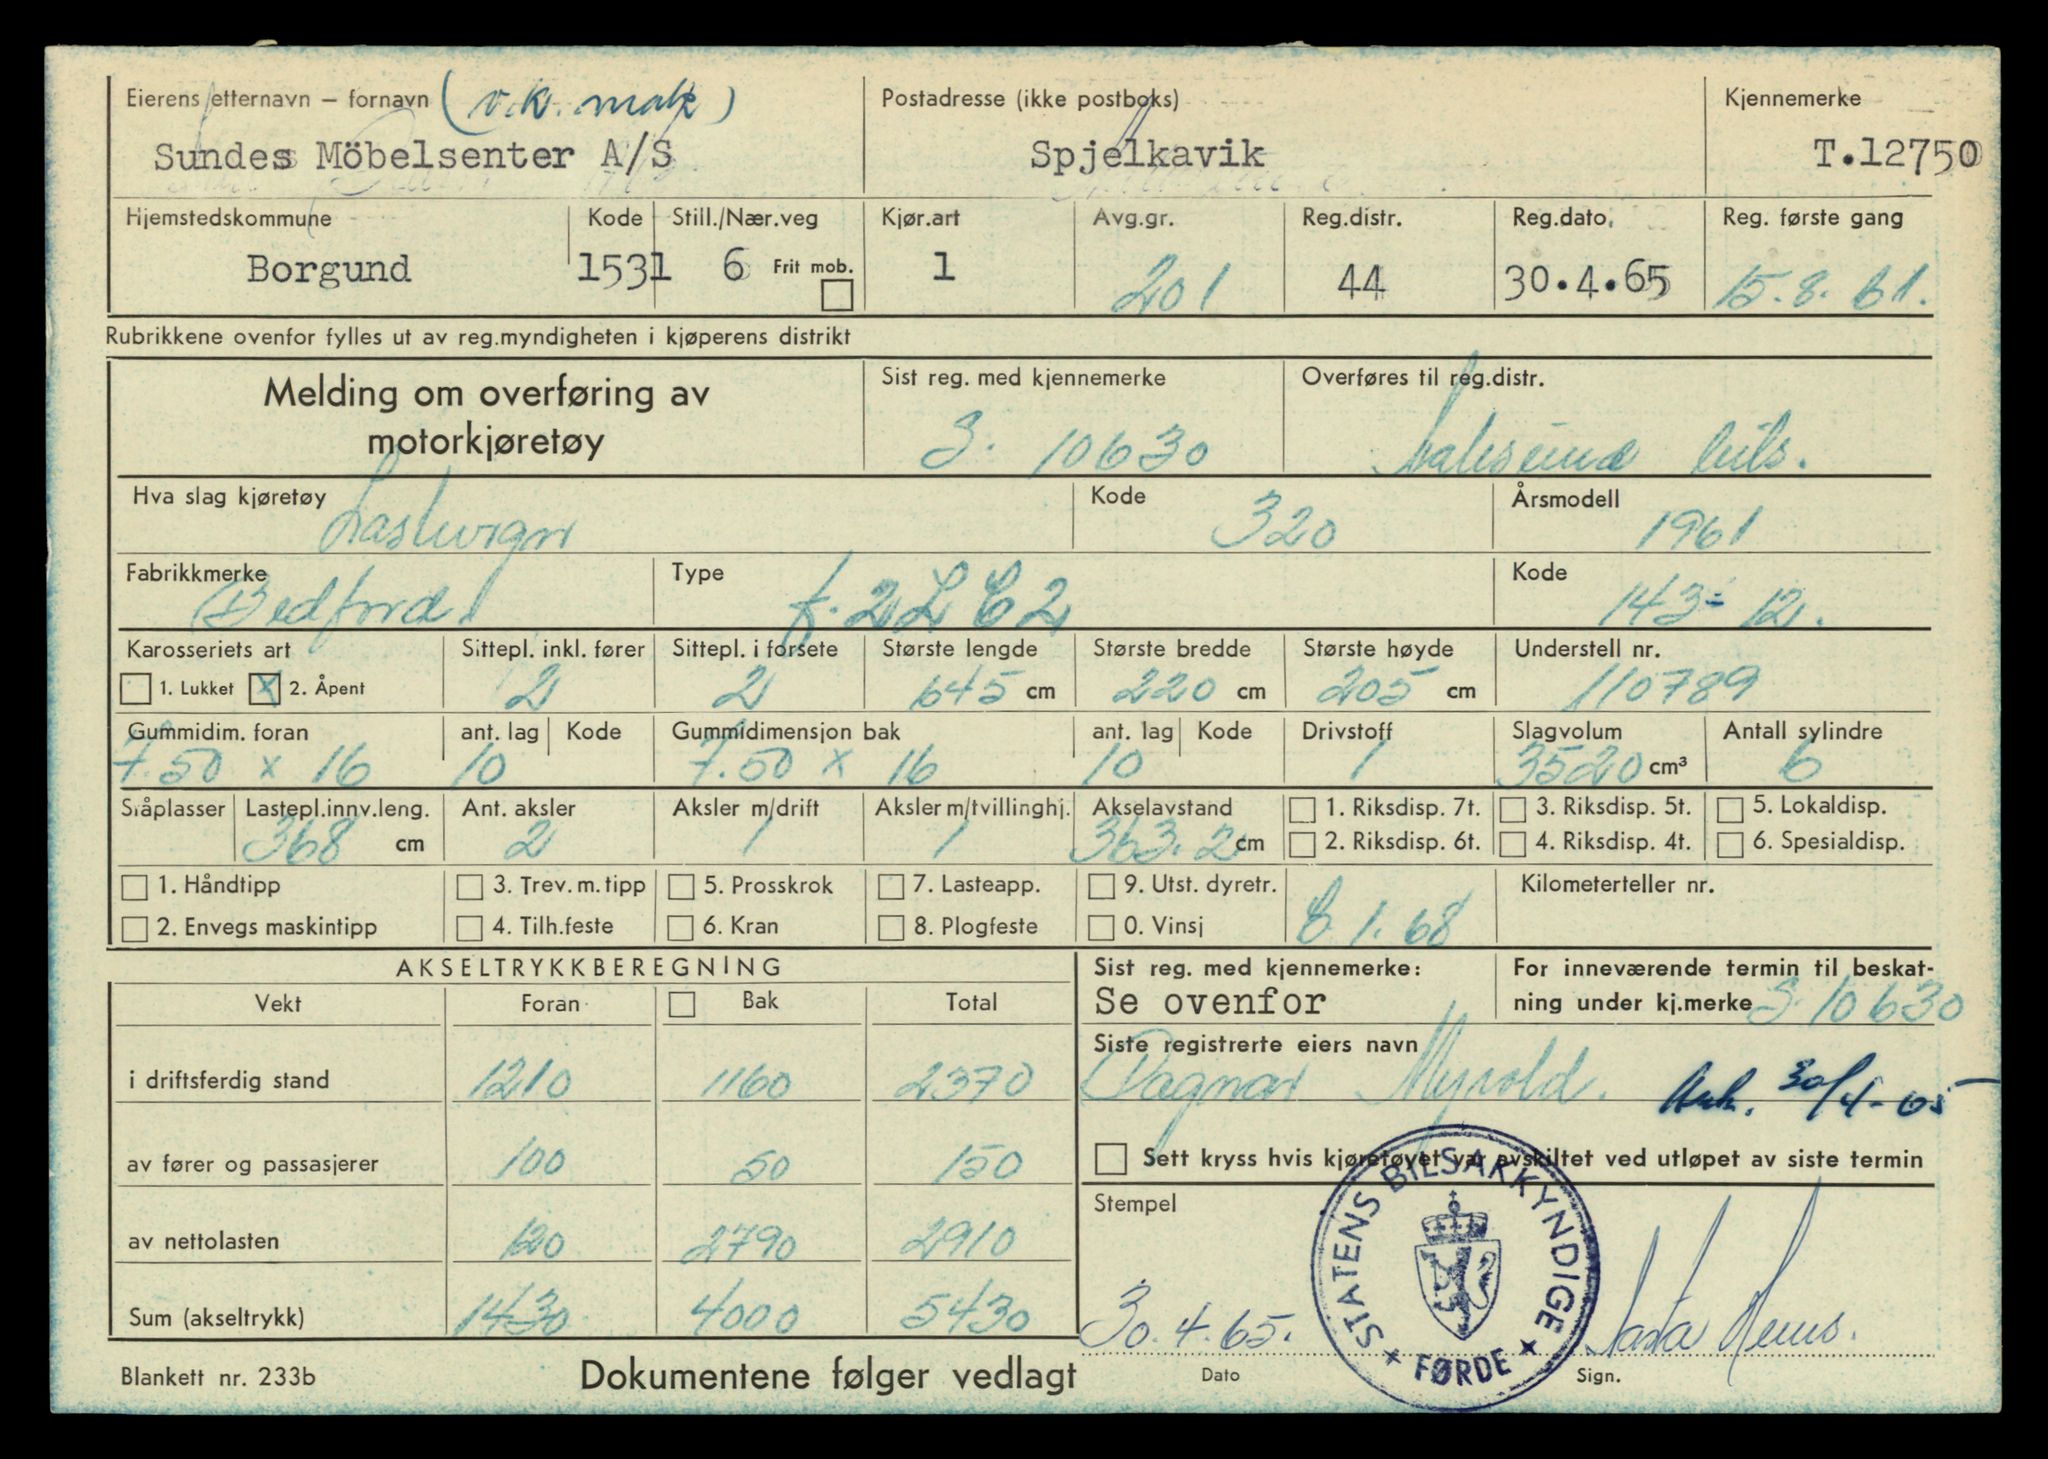 Eierens etternavn – fornavn (v.k. mak)
Sundes Möbelsenter A/S
Postadresse (ikke postboks)
Spjelkavik
Kjennemerke
T.12750
Hjemstedskommune
Borgund
Kode
1531
Still./Nær.veg
6 Frit mob.
Kjør.art
1
Avg.gr.
201
Reg.distr.
44
Reg.dato.
30.4.65
Reg. første gang
15.8.61.
Rubrikkene ovenfor fylles ut av reg.myndigheten i kjøperens distrikt
Melding om overføring av
motorkjøretøy
Sist reg. med kjennemerke
S. 10630
Overføres til reg.distr.
Aalesund bils.
Hva slag kjøretøy
Lastevogn
Kode
320
Årsmodell
1961
Fabrikkmerke
Bedford
Type
J.2LC2
Kode
143-12.
Karosseriets art
1. Lukket X 2. Åpent
Sittepl. inkl. fører
2
Sittepl. i forsete
2
Største lengde
645 cm
Største bredde
220 cm
Største høyde
205 cm
Understell nr.
110789
Gummidim. foran
7.50 x 16
ant. lag
10
Kode
Gummidimensjon bak
7.50 x 16
ant. lag
10
Kode
Drivstoff
1
Slagvolum
3520 cm³
Antall sylindre
6
Ståplasser
Lastepl.innv.leng.
368 cm
Ant. aksler
2
Aksler m/drift
1
Aksler m/tvillinghj.
1
Akselavstand
363.2 cm
1. Riksdisp. 7t.
2. Riksdisp. 6t.
3. Riksdisp. 5t.
4. Riksdisp. 4t.
5. Lokaldisp.
6. Spesialdisp.
1. Håndtipp
2. Envegs maskintipp
3. Trev. m. tipp
4. Tilh.feste
5. Prosskrok
6. Kran
7. Lasteapp.
8. Plogfeste
9. Utst. dyretr.
0. Vinsj
8.1.68
Kilometerteller nr.
AKSELTRYKKBEREGNING
Vekt Foran Bak Total
i driftsferdig stand 1210 1160 2370
av fører og passasjerer 100 50 150
av nettolasten 120 2790 2910
Sum (akseltrykk) 1430 4000 5430
Sist reg. med kjennemerke:
Se ovenfor
For inneværende termin til beskat-
ning under kj.merke S. 10630
Siste registrerte eiers navn
Dagnar Myrold. Ank. 30/4-65
Sett kryss hvis kjøretøyet var avskiltet ved utløpet av siste termin
Stempel
STATENS BILSAKKYNDIGE
FØRDE
30.4.65.
Dato
Sign.
Blankett nr. 233b
Dokumentene følger vedlagt